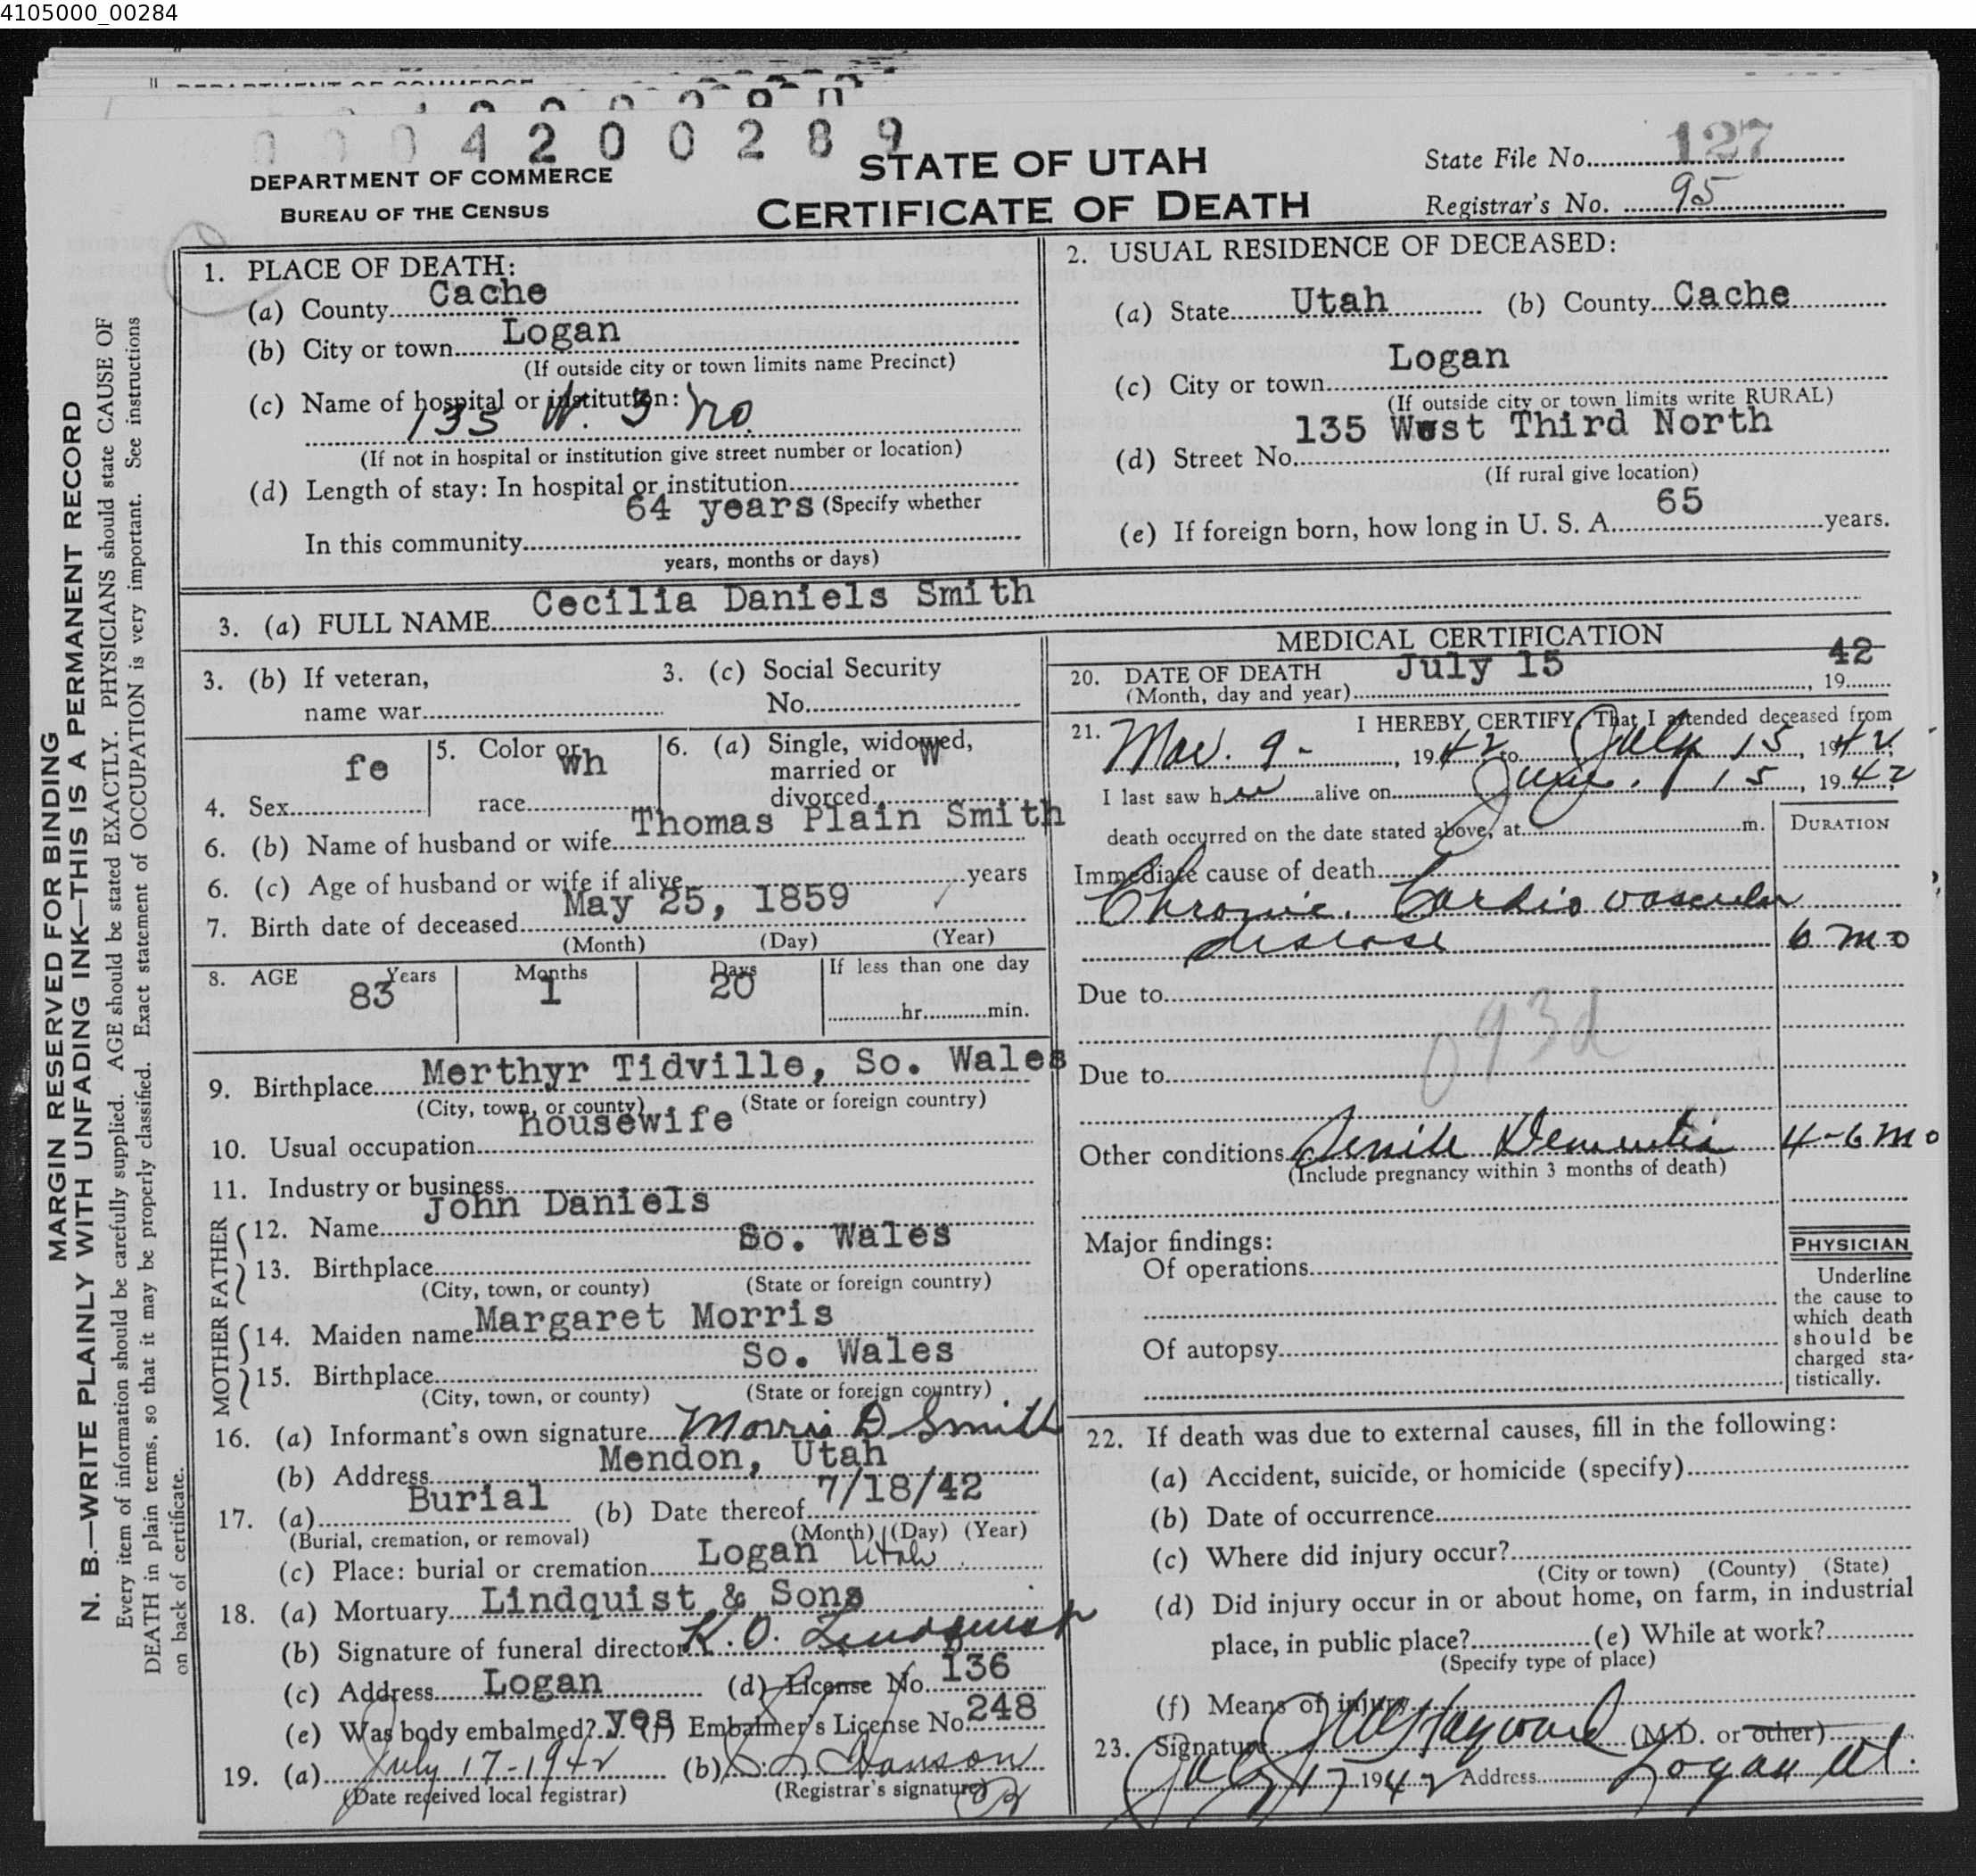 4105000_00284
0 0 0 4 2 0 0 2 8 9
DEPARTMENT OF COMMERCE
BUREAU OF THE CENSUS
STATE OF UTAH
CERTIFICATE OF DEATH
State File No. 127
Registrar's No. 95
MARGIN RESERVED FOR BINDING
N. B.—WRITE PLAINLY WITH UNFADING INK—THIS IS A PERMANENT RECORD
Every item of information should be carefully supplied. AGE should be stated EXACTLY. PHYSICIANS should state CAUSE OF
DEATH in plain terms, so that it may be properly classified. Exact statement of OCCUPATION is very important. See instructions
on back of certificate.
1. PLACE OF DEATH:
(a) County Cache
(b) City or town Logan
(If outside city or town limits name Precinct)
(c) Name of hospital or institution:
135 W. 3 No.
(If not in hospital or institution give street number or location)
(d) Length of stay: In hospital or institution
64 years (Specify whether
In this community
years, months or days)
2. USUAL RESIDENCE OF DECEASED:
(a) State Utah (b) County Cache
(c) City or town Logan
(If outside city or town limits write RURAL)
135 West Third North
(d) Street No.
(If rural give location)
(e) If foreign born, how long in U. S. A. 65 years.
3. (a) FULL NAME Cecilia Daniels Smith
3. (b) If veteran,
name war
3. (c) Social Security
No.
4. Sex fe
5. Color or
race wh
6. (a) Single, widowed,
married or
divorced W
6. (b) Name of husband or wife Thomas Plain Smith
6. (c) Age of husband or wife if alive years
7. Birth date of deceased May 25, 1859
(Month) (Day) (Year)
8. AGE Years Months Days If less than one day
83 1 20 hr. min.
9. Birthplace Merthyr Tidville, So. Wales
(City, town, or county) (State or foreign country)
10. Usual occupation housewife
11. Industry or business
FATHER
12. Name John Daniels
13. Birthplace So. Wales
(City, town, or county) (State or foreign country)
MOTHER
14. Maiden name Margaret Morris
15. Birthplace So. Wales
(City, town, or county) (State or foreign country)
16. (a) Informant's own signature Morris D. Smith
(b) Address Mendon, Utah
17. (a) Burial (b) Date thereof 7/18/42
(Burial, cremation, or removal) (Month) (Day) (Year)
(c) Place: burial or cremation Logan Utah
18. (a) Mortuary Lindquist & Sons
(b) Signature of funeral director K. O. Lindquist
(c) Address Logan (d) License No. 136
(e) Was body embalmed? yes (f) Embalmer's License No. 248
19. (a) July 17-1942 (b) Hanson
(Date received local registrar) (Registrar's signature)
MEDICAL CERTIFICATION
20. DATE OF DEATH July 15 42
(Month, day and year) , 19
21. I HEREBY CERTIFY, That I attended deceased from
Mar. 9- , 1942 to July 15, 1942
I last saw her alive on June. 15, 1942
death occurred on the date stated above, at m.
DURATION
Immediate cause of death
Chronic Cardio vascular
disease 6 mo
Due to
093d
Due to
Other conditions Senile Dementia 4-6 mo
(Include pregnancy within 3 months of death)
Major findings:
Of operations
Of autopsy
PHYSICIAN
Underline
the cause to
which death
should be
charged sta-
tistically.
22. If death was due to external causes, fill in the following:
(a) Accident, suicide, or homicide (specify)
(b) Date of occurrence
(c) Where did injury occur?
(City or town) (County) (State)
(d) Did injury occur in or about home, on farm, in industrial
place, in public place? (e) While at work?
(Specify type of place)
(f) Means of injury
23. Signature Hayward (M.D. or other)
July 17 1942 Address Logan Ut.